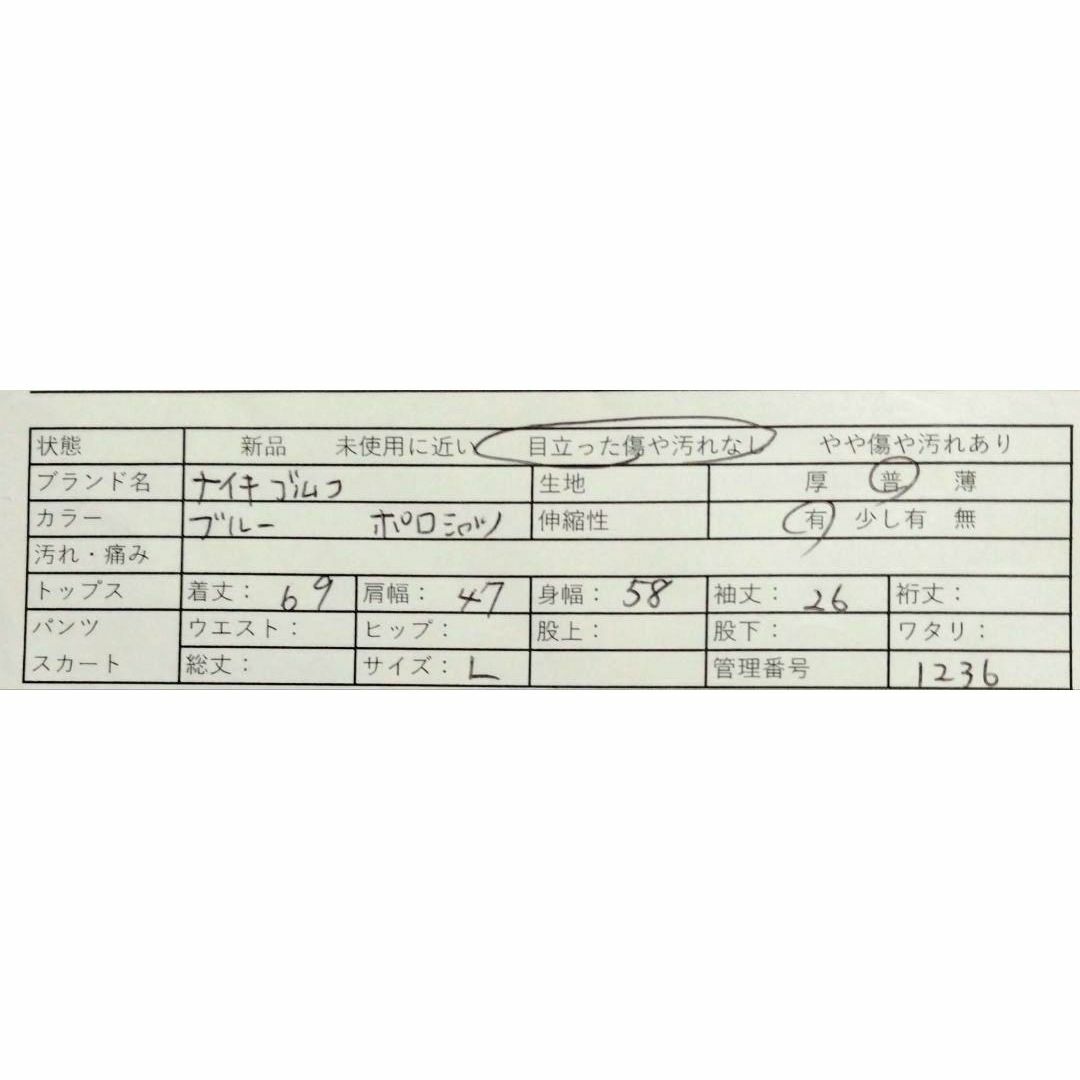 状態 新品 未使用に近い 目立った傷や汚れなし やや傷や汚れあり
ブランド名 ナイキゴルフ 生地 厚 普 薄
カラー ブルー ポロシャツ 伸縮性 有 少し有 無
汚れ・痛み
トップス 着丈： 69 肩幅： 47 身幅： 58 袖丈： 26 裄丈：
パンツ ウエスト： ヒップ： 股上： 股下： ワタリ：
スカート 総丈： サイズ： L 管理番号 1236